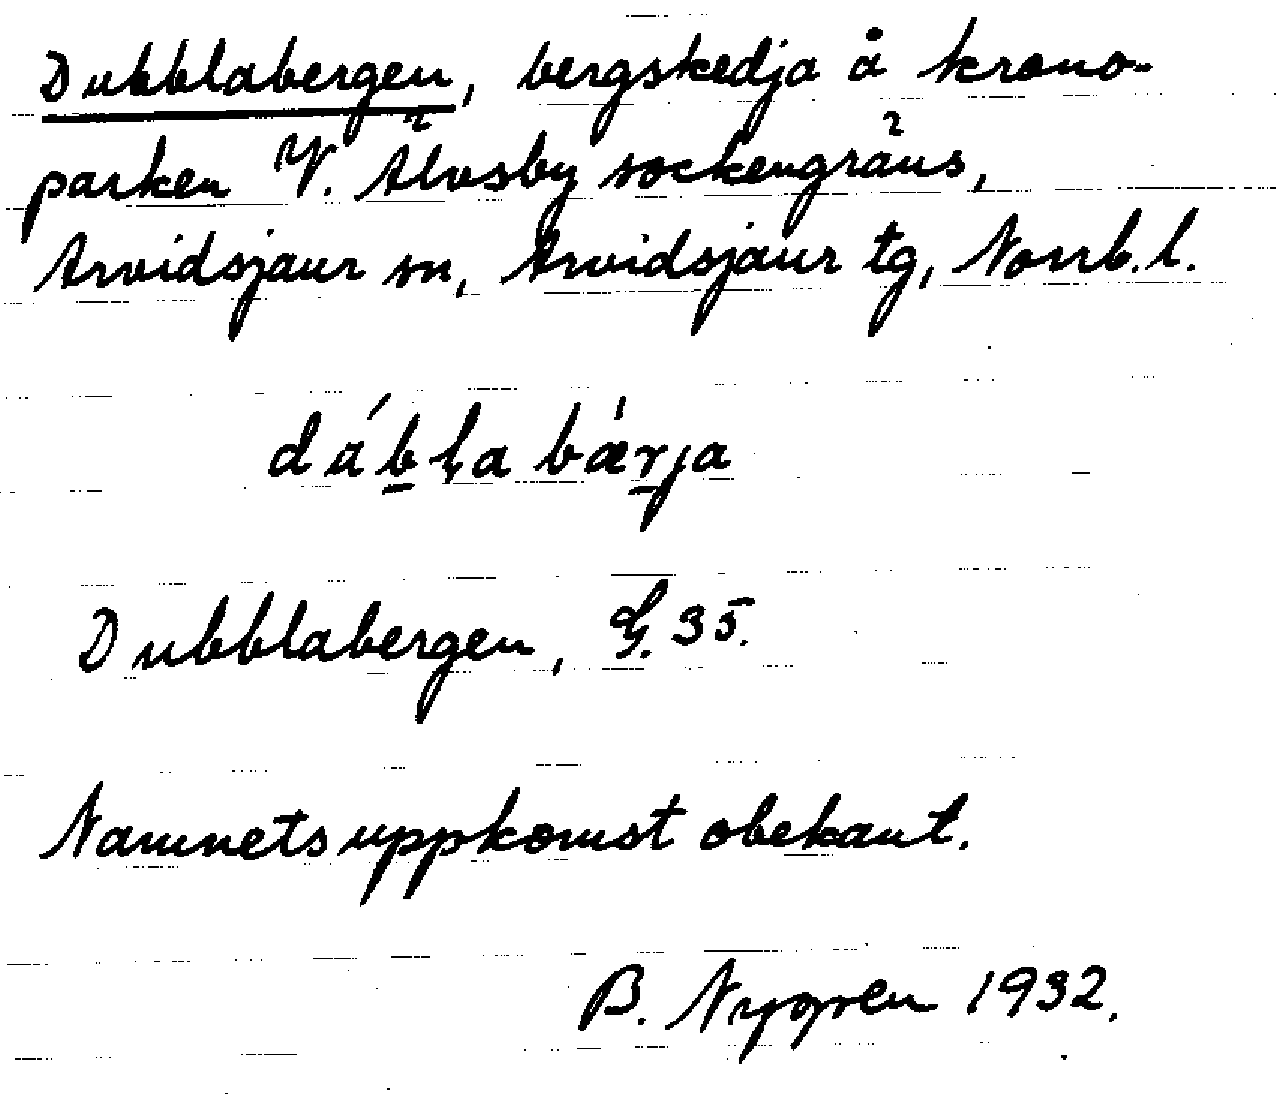 Dubblabergen, bergskedja å krono-
parken V. Älvsby sockengräns,
Arvidsjaur sn, Arvidsjaur tg, Norrb. l.
dábla bærja
Dubblabergen, G. 35.
Namnets uppkomst obekant.
B. Nygren 1932.